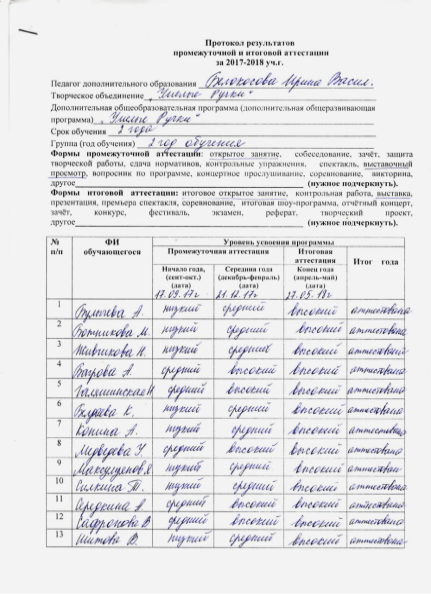 Протокол результатов
промежуточной и итоговой аттестации
за 2017-2018 уч.г.
Педагог дополнительного образования Белокосова Ирина Васил.
Творческое объединение „Умелые Ручки“
Дополнительная общеобразовательная программа (дополнительная общеразвивающая
программа) „Умелые Ручки“
Срок обучения 2 года
Группа (год обучения) 2 год обучения
Формы промежуточной аттестации: открытое занятие, собеседование, зачёт, защита
творческой работы, сдача нормативов, контрольные упражнения, спектакль, выставочный
просмотр, вопросник по программе, концертное прослушивание, соревнование, викторина,
другое (нужное подчеркнуть).
Формы итоговой аттестации: итоговое открытое занятие, контрольная работа, выставка,
презентация, премьера спектакля, соревнование, итоговая шоу-программа, отчётный концерт,
зачёт, конкурс, фестиваль, экзамен, реферат, творческий проект,
другое (нужное подчеркнуть).
№ п/п ФИ обучающегося Уровень усвоения программы
Промежуточная аттестация Итоговая аттестация Итог года
Начало года, (сент-окт.) (дата) 17.09.17г Середина года (декабрь-февраль) (дата) 21.12.17г Конец года (апрель-май) (дата) 27.05.18г
1 А. низкий средний высокий аттестована
2 Ботникова М. низкий средний высокий аттестована
3 Живчикова Н. низкий средний высокий аттестована
4 Вагрова А. средний высокий высокий аттестована
5 средний высокий высокий аттестована
6 Беляева К. низкий средний высокий аттестована
7 Конина А. низкий средний высокий аттестована
8 Медведева У. средний высокий высокий аттестована
9 низкий средний высокий аттестован
10 Силкина Т. низкий средний высокий аттестована
11 Середкина А средний высокий высокий аттестована
12 Сафронова В средний высокий высокий аттестована
13 Шитова В. низкий средний высокий аттестована